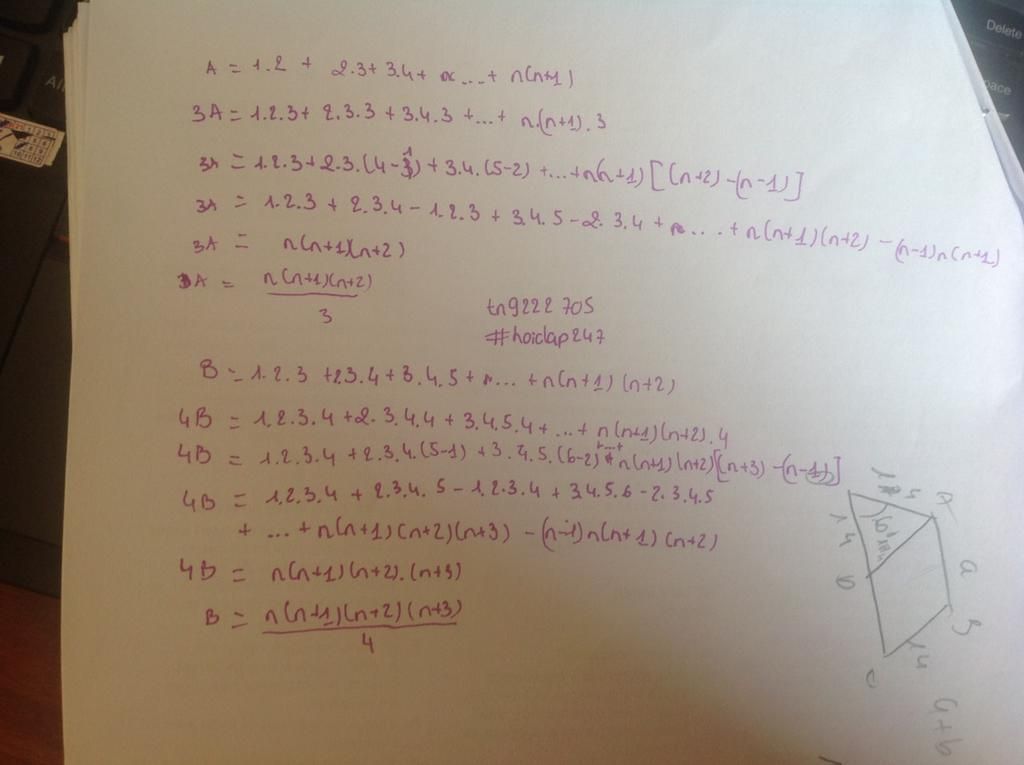 A = 1.2 + 2.3 + 3.4 + ... + n(n+1)
3A = 1.2.3 + 2.3.3 + 3.4.3 + ... + n.(n+1).3
3A = 1.2.3 + 2.3.(4-1) + 3.4.(5-2) + ... + n(n+1)[(n+2) - (n-1)]
3A = 1.2.3 + 2.3.4 - 1.2.3 + 3.4.5 - 2.3.4 + .... + n(n+1)(n+2) - (n-1)n(n+1)
3A = n(n+1)(n+2)
A = n(n+1)(n+2)
3
tn9222705
#hoidap247
B = 1.2.3 + 2.3.4 + 3.4.5 + ... + n(n+1)(n+2)
4B = 1.2.3.4 + 2.3.4.4 + 3.4.5.4 + ... + n(n+1)(n+2).4
4B = 1.2.3.4 + 2.3.4.(5-1) + 3.4.5.(6-2) + ... + n(n+1)(n+2)[(n+3) - (n-1)]
4B = 1.2.3.4 + 2.3.4.5 - 1.2.3.4 + 3.4.5.6 - 2.3.4.5
+ ... + n(n+1)(n+2)(n+3) - (n-1)n(n+1)(n+2)
4B = n(n+1)(n+2).(n+3)
B = n(n+1)(n+2)(n+3)
4
A
14
a
B
14
C
a+b
Delete